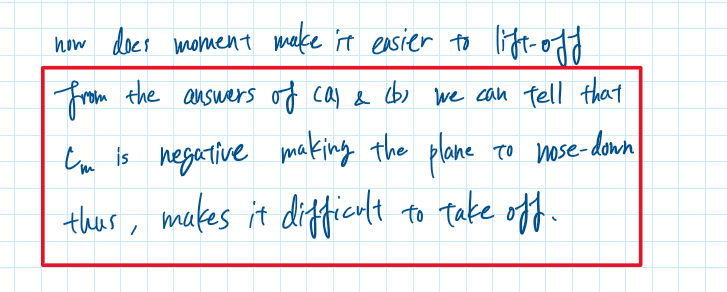 how does moment make it easier to lift-off
from the answers of (a) & (b) we can tell that
Cm is negative making the plane to nose-down
thus, makes it difficult to take off.